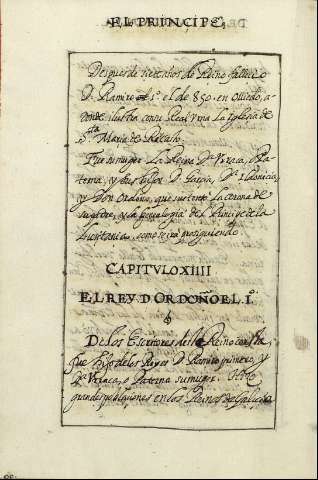 EL PRINCIPE,
Despues de siete años de Reino fallecio
D. Ramiro el 1º el de 850. en Oviedo, a
donde ilustra con su Real Vrna la Iglesia de
S.ta Maria de
Fue su muger La Reina D.ª Vrraca, o Pa
terna, y sus hijos D. Garcia, D.ª Ildoncia,
y Don Ordoño, que sustentò la corona de
su padre, y la genealogia del Principe de la
Lusitania, como se irà prosiguiendo.
CAPITVLO XIIII
EL REY D ORDOÑO EL I.º
De los Escritores de Reino consta,
fue hijo de los Reyes D. Ramiro primero, y
D.ª Vrraca, o Paterna su muger. Hizo
grandes poblaçiones en los Reinos de Galicia